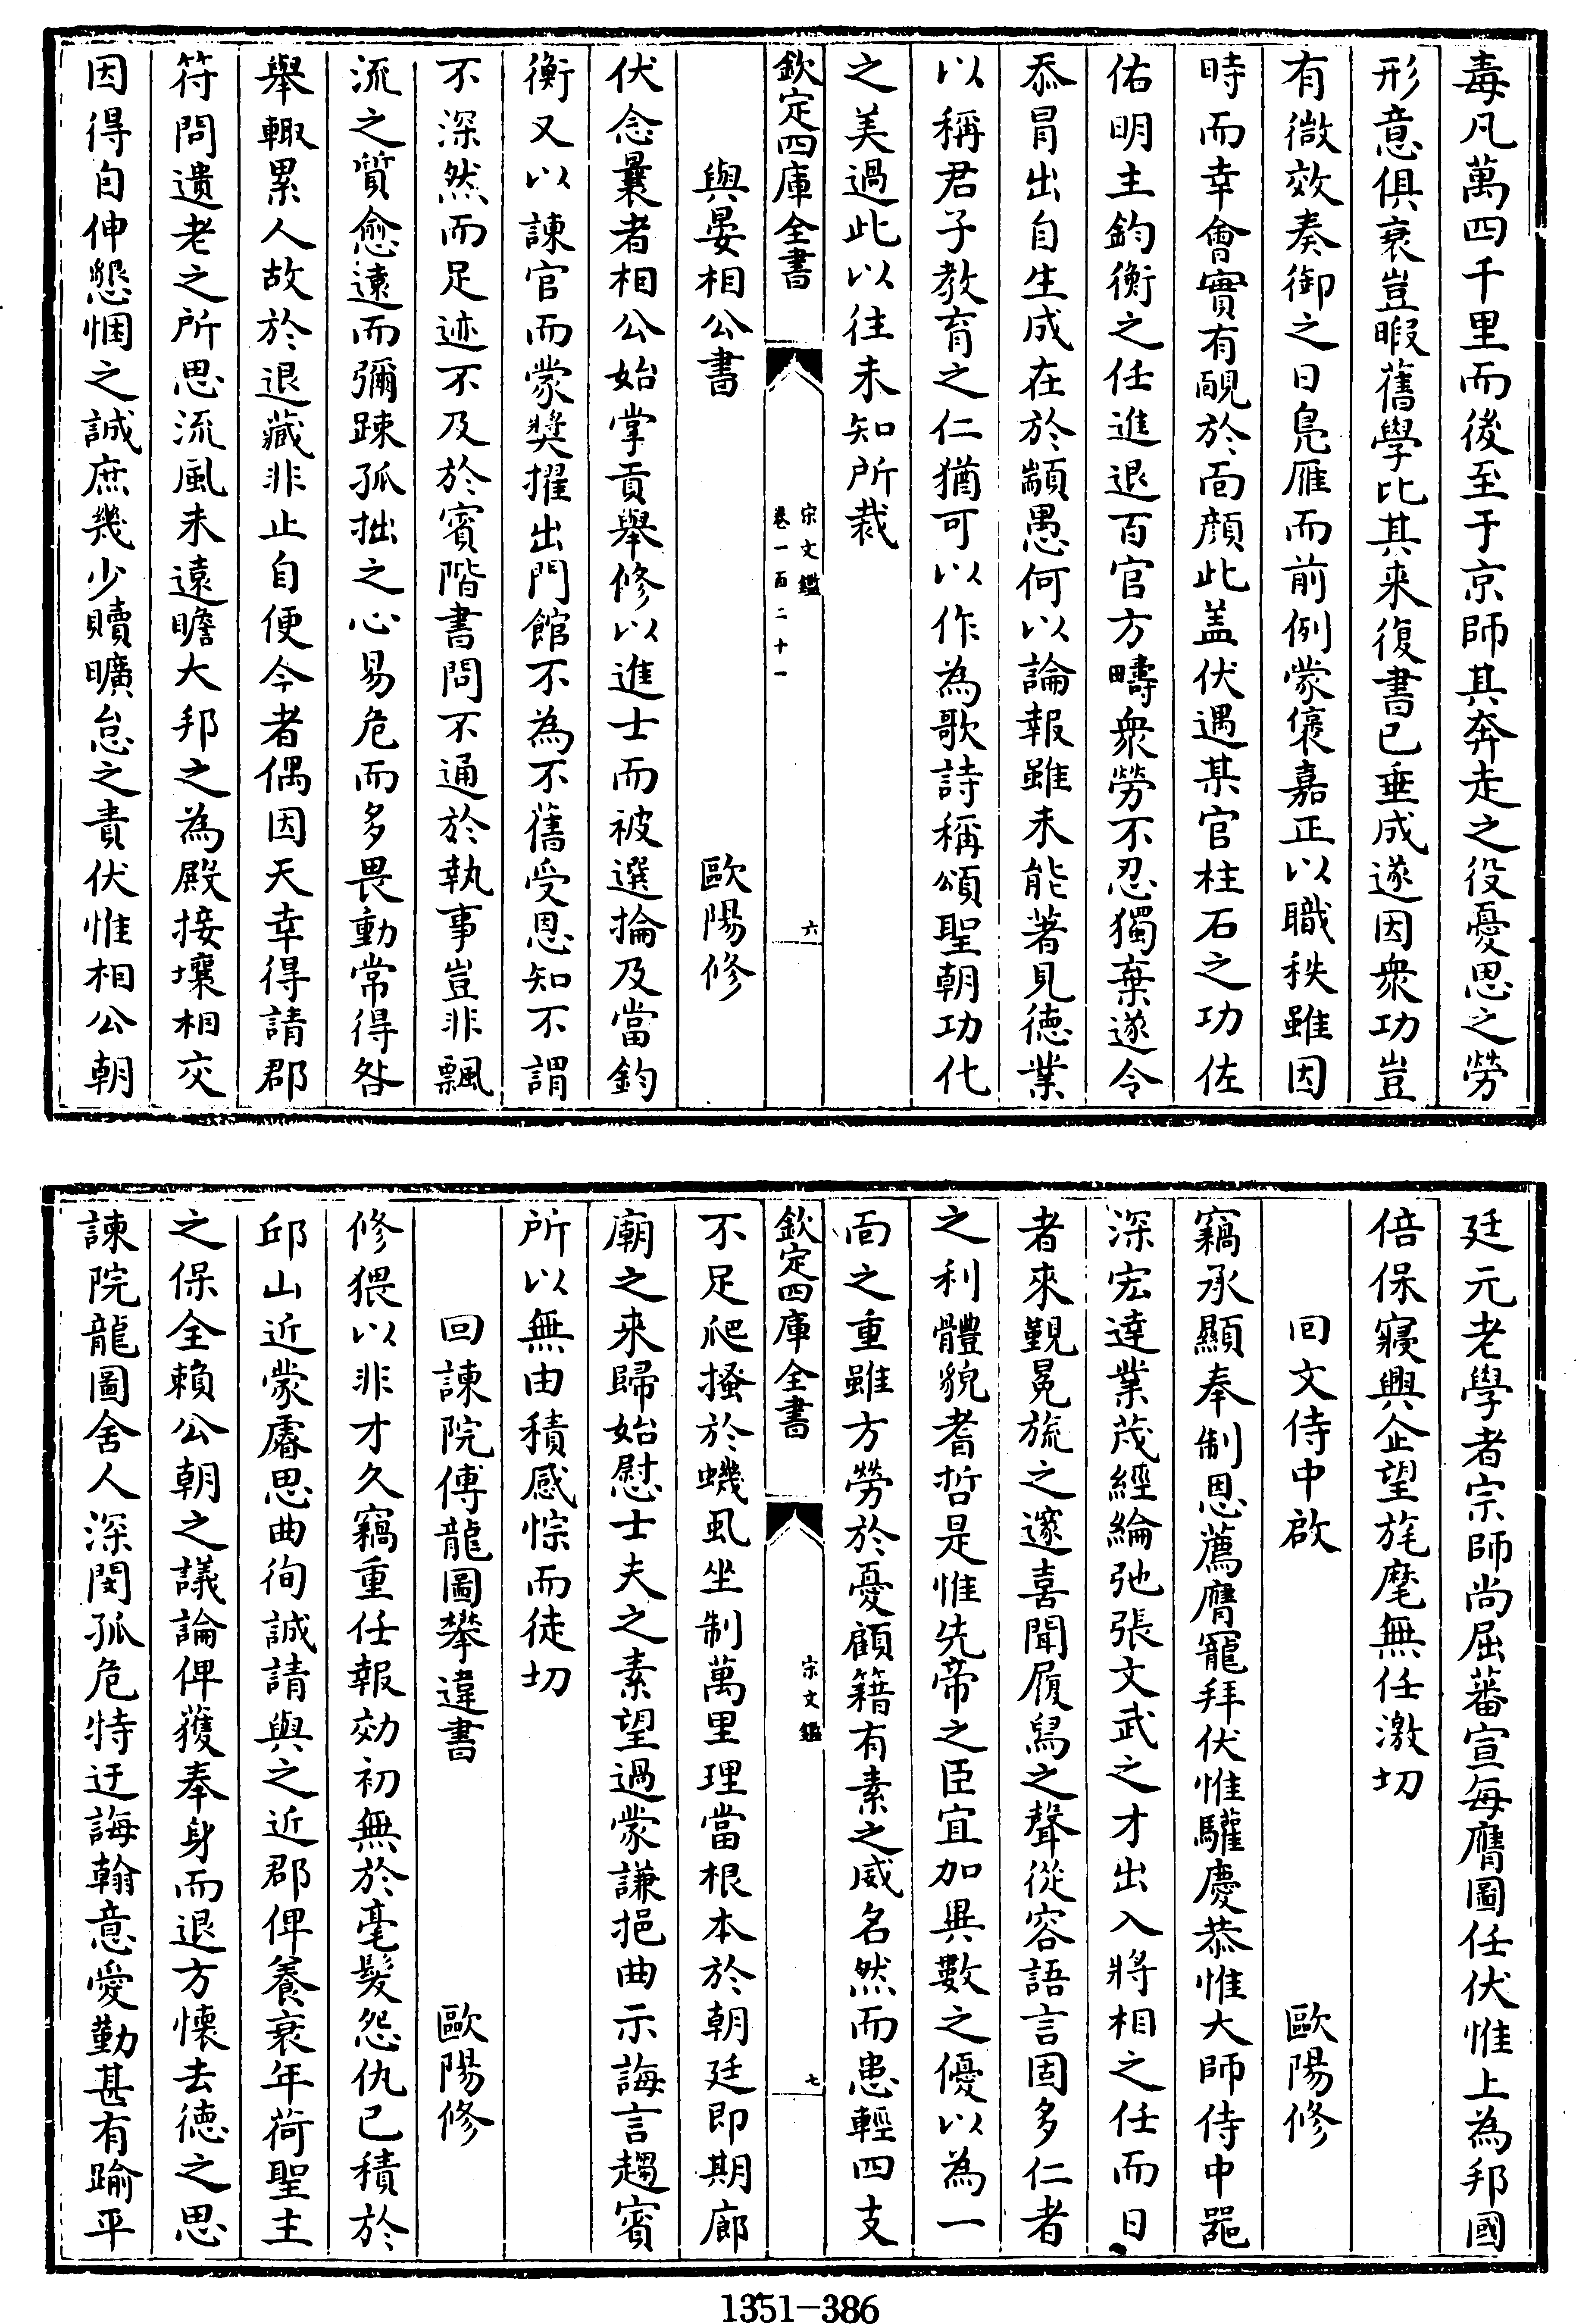 毒凡萬四千里而後至于京師其奔走之役憂思之勞
形意俱衰豈暇舊學比其来復書已垂成遂因衆功豈
有微效奏御之日鳧雁而前例蒙褒嘉正以職秩雖因
時而幸會實有靦於面顔此盖伏遇某官柱石之功佐
佑明主鈞衡之任進退百官方疇衆勞不忍獨棄遂令
忝冒出自生成在於顓愚何以論報雖未能著見德業
以稱君子教育之仁猶可以作為歌詩稱頌聖朝功化
之美過此以往未知所裁
欽定四庫全書
宋文鑑
卷一百二十一
六
與晏相公書 歐陽修
伏念曩者相公始掌貢舉修以進士而被選掄及當鈞
衡又以諫官而蒙奬擢出門館不為不舊受恩知不謂
不深然而足迹不及於賓階書問不通於執事豈非飄
流之質愈遠而彌踈孤拙之心易危而多畏動常得咎
舉輙累人故於退藏非止自便今者偶因天幸得請郡
符問遺老之所思流風未遠瞻大邦之為殿接壤相交
因得自伸懇悃之誠庶幾少贖曠怠之責伏惟相公朝
廷元老學者宗師尚屈蕃宣每膺圖任伏惟上為邦國
倍保寢興企望旄麾無任激切
回文侍中啟 歐陽修
竊承顯奉制恩薦膺寵拜伏惟驩慶恭惟大師侍中噐
深宏達業茂經綸弛張文武之才出入將相之任而日
者來覲冕旒之邃喜聞履舄之聲從容語言固多仁者
之利體貌耆哲是惟先帝之臣宜加異數之優以為一
面之重雖方勞於憂顧籍有素之威名然而患輕四支
欽定四庫全書
宋文鑑
七
不足爬搔於蟣虱坐制萬里理當根本於朝廷即期廊
廟之来歸始慰士夫之素望過蒙謙挹曲示誨言趨賓
所以無由積感悰而徒切
回諫院傅龍圖攀違書 歐陽修
修猥以非才久竊重任報効初無於毫髮怨仇已積於
邱山近蒙睿思曲徇誠請與之近郡俾養衰年荷聖主
之保全賴公朝之議論俾獲奉身而退方懷去德之思
諫院龍圖舍人深閔孤危特迂誨翰意愛勤甚有踰平
1351-386